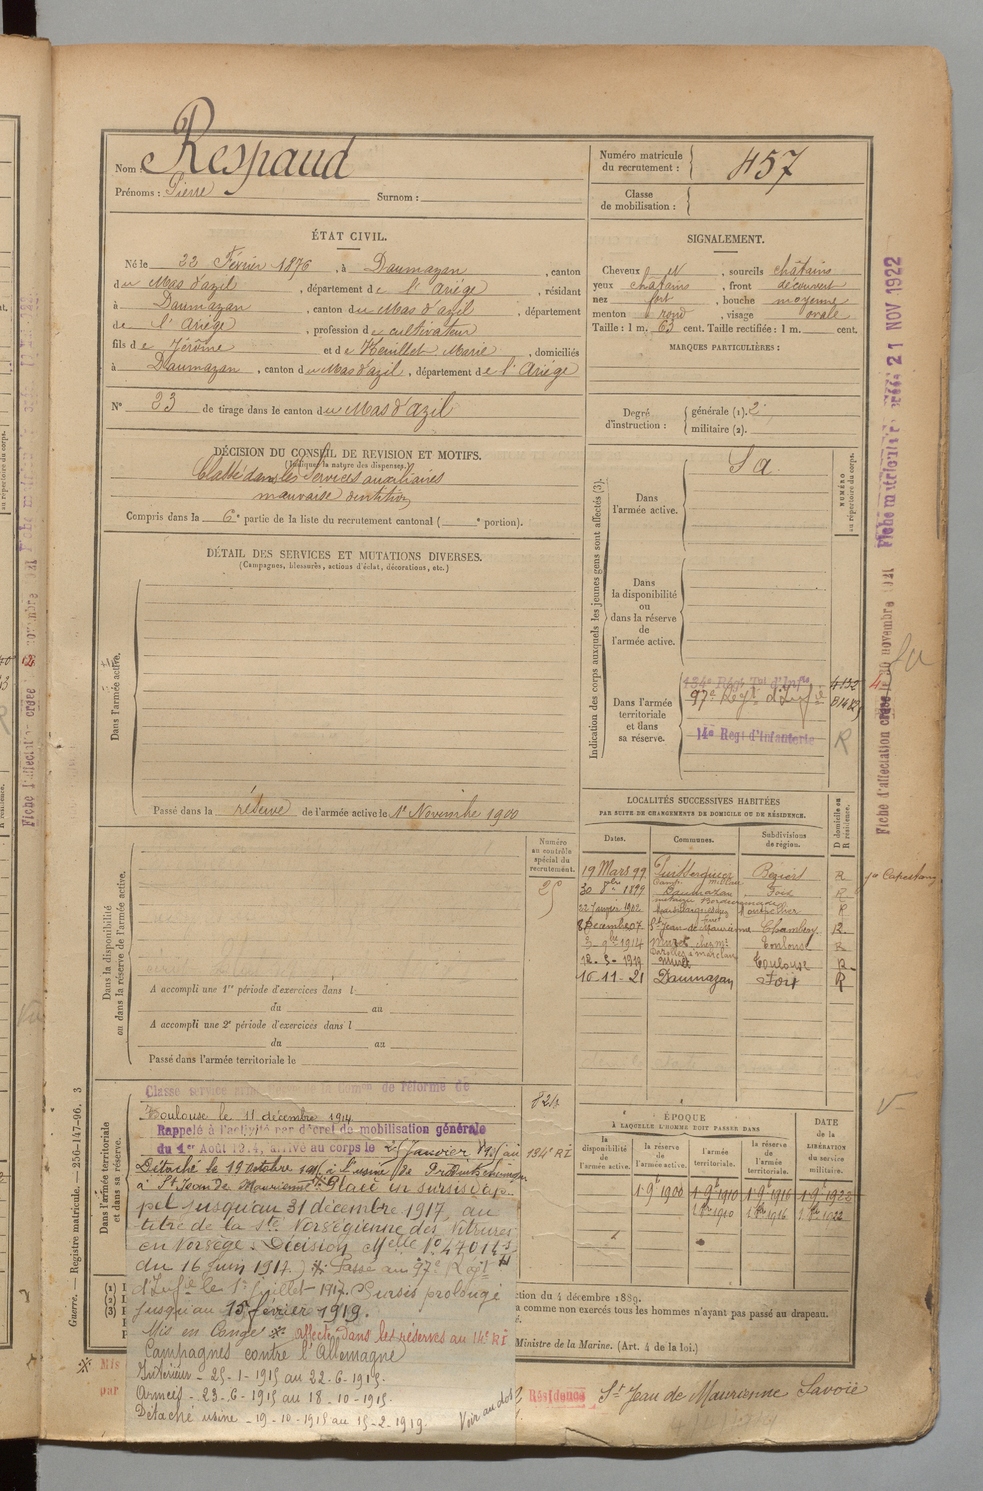 Nom : Respaud
Prénoms : Pierre Surnom :
Numéro matricule du recrutement : 457
Classe de mobilisation :
ÉTAT CIVIL.
Né le 22 Février 1876, à Daumazan, canton
du Mas d'azil, département de l'Ariége, résidant
à Daumazan, canton du Mas d'azil, département
de l'Ariége, profession de cultivateur
fils de Jérôme et de Heuillet Marie, domiciliés
à Daumazan, canton du Mas d'azil, département de l'Ariége
N° 23 de tirage dans le canton du Mas d'Azil
SIGNALEMENT.
Cheveux , sourcils châtains
yeux châtains, front découvert
nez fort, bouche moyenne
menton rond, visage ovale
Taille : 1 m. 63 cent. Taille rectifiée : 1 m. cent.
MARQUES PARTICULIÈRES :
Degré d'instruction : générale (1). 2
militaire (2).
DÉCISION DU CONSEIL DE REVISION ET MOTIFS.
(Indiquer la nature des dispenses.)
Classé dans les Services auxiliaires
mauvaise dentition
Compris dans la 6e partie de la liste du recrutement cantonal ( e portion).
DÉTAIL DES SERVICES ET MUTATIONS DIVERSES.
(Campagnes, blessures, actions d'éclat, décorations, etc.)
Dans l'armée active.
Passé dans la réserve de l'armée active le 1er Novembre 1900
Indication des corps auxquels les jeunes gens sont affectés (3).
NUMÉRO au répertoire du corps.
Dans l'armée active.
S a
Dans la disponibilité ou dans la réserve de l'armée active.
Dans l'armée territoriale et dans sa réserve.
134e Régt Tal d'Infie
97e Régt d'Infie
14e Regt d'Infanterie
R
LOCALITÉS SUCCESSIVES HABITÉES
PAR SUITE DE CHANGEMENTS DE DOMICILE OU DE RÉSIDENCE.
Dates. Communes. Subdivisions de région. D domicile ou R résidence.
19 Mars 99 Puisserguier Béziers R
30 1899 Daumazan Foix R
22 Janvier 1902 R
8 Décembre 07 St Jean de Maurienne Chambéry R
3 - 9bre 1914 Muret chez Mr Toulouse R
12 - 3 - 1919 Muret Toulouse R
10 - 11 - 21 Daumazan Foix R
Numéro au contrôle spécial du recrutement.
25
Dans la disponibilité ou dans la réserve de l'armée active.
A accompli une 1re période d'exercices dans l
du au
A accompli une 2e période d'exercices dans l
du au
Passé dans l'armée territoriale le
Dans l'armée territoriale et dans sa réserve.
Classé service armé de la Comon de réforme de
Toulouse le 11 décembre 1914
Rappelé à l'activité par décret de mobilisation générale
du 1er Août 1914, arrivé au corps le 25 Janvier 1915 au 134e R I
Détaché le 19 Octobre 1915 à l'usine de Produits chimiques
à St Jean de Maurienne Placé en sursis d'ap-
pel jusqu'au 31 décembre 1917, au
titre de la Sté Norvégienne des Nitrures
en Norvège. Décision Melle No 47014
du 16 juin 1917. Passé au 97e Régt
d'Infie le 1er Juillet 1917. Sursis prolongé
jusqu'au 15 février 1919.
Mis en Congé affecté dans les réserves au 14e R I
Campagnes contre l'Allemagne
Intérieur - 25-1-1915 au 22-6-1915.
Armées - 23-6-1915 au 18-10-1915.
Détaché usine - 19-10-1915 au 15-2-1919.
Voir au dos
ÉPOQUE
À LAQUELLE L'HOMME DOIT PASSER DANS
la disponibilité de l'armée active. la réserve de l'armée active. l'armée territoriale. la réserve de l'armée territoriale.
DATE de la LIBÉRATION du service militaire.
1er 9bre 1900 1er 9bre 1910 1er 9bre 1916 1er 9bre 1922
1er 8bre 1910 1er 8bre 1916 1er 8bre 1922
ction du 4 décembre 1889.
a comme non exercés tous les hommes n'ayant pas passé au drapeau.
Ministre de la Marine. (Art. 4 de la loi.)
Mis
par
Résidence St Jean de Maurienne Savoie
Guerre. — Registre matricule. — 256-147-96. 3
Fiche d'affectation créée novembre
Fiche matriculaire créée 21 NOV 1922